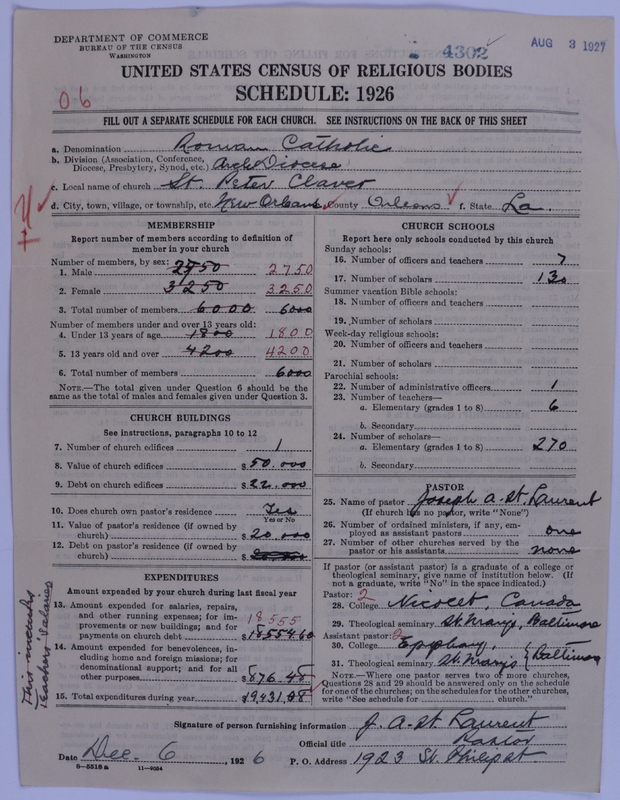 DEPARTMENT OF COMMERCE
BUREAU OF THE CENSUS
WASHINGTON
4302
AUG 3 1927
UNITED STATES CENSUS OF RELIGIOUS BODIES
SCHEDULE: 1926
06
FILL OUT A SEPARATE SCHEDULE FOR EACH CHURCH. SEE INSTRUCTIONS ON THE BACK OF THIS SHEET
a. Denomination Roman Catholic
b. Division (Association, Conference, Diocese, Presbytery, Synod, etc.) Archdiocese
c. Local name of church St. Peter Claver
d. City, town, village, or township, etc. New Orleans County Orleans f. State La.
MEMBERSHIP
Report number of members according to definition of
member in your church
Number of members, by sex:
1. Male 2750 2750
2. Female 3250 3250
3. Total number of members 6000 6000
Number of members under and over 13 years old:
4. Under 13 years of age 1800 1800
5. 13 years old and over 4200 4200
6. Total number of members 6000
NOTE.—The total given under Question 6 should be
same as the total of males and females given under Question 3.
CHURCH BUILDINGS
See instructions, paragraphs 10 to 12
7. Number of church edifices 1
8. Value of church edifices $50.000
9. Debt on church edifices $22.000
10. Does church own pastor's residence? Yes
Yes or No
11. Value of pastor's residence (if owned by
church) $20.000
12. Debt on pastor's residence (if owned by
church) $
EXPENDITURES
Amount expended by your church during last fiscal year
13. Amount expended for salaries, repairs,
and other running expenses; for im-
provements or new buildings; and for
payments on church debt 18555 $18554.60
14. Amount expended for benevolences, in-
cluding home and foreign missions; for
denominational support; and for all
other purposes $876.48
15. Total expenditures during year $19,431.08
This includes
Teachers Salaries
CHURCH SCHOOLS
Report here only schools conducted by this church
Sunday schools:
16. Number of officers and teachers 7
17. Number of scholars 130
Summer vacation Bible schools:
18. Number of officers and teachers
19. Number of scholars
Week-day religious schools:
20. Number of officers and teachers
21. Number of scholars
Parochial schools:
22. Number of administrative officers 1
23. Number of teachers—
a. Elementary (grades 1 to 8) 6
b. Secondary
24. Number of scholars—
a. Elementary (grades 1 to 8) 270
b. Secondary
PASTOR
25. Name of pastor Joseph A. St Laurent
(If church has no pastor, write "None")
26. Number of ordained ministers, if any, em-
ployed as assistant pastors one
27. Number of other churches served by the
pastor or his assistants none
If pastor (or assistant pastor) is a graduate of a college or
theological seminary, give name of institution below. (If
not a graduate, write "No" in the space indicated.)
Pastor: 2
28. College Nicolet, Canada
29. Theological seminary St. Mary's, Baltimore
Assistant pastor: 2
30. College Epiphany, Baltimore
31. Theological seminary St. Mary's
NOTE.—Where one pastor serves two or more churches,
Questions 28 and 29 should be answered only on the schedule
for one of the churches; on the schedules for the other churches,
write "See schedule for church."
Signature of person furnishing information J. A. St. Laurent
Official title Pastor
Date Dec. 6, 1926 P. O. Address 1923 St. Philip st.
8—5518 a 11—9034